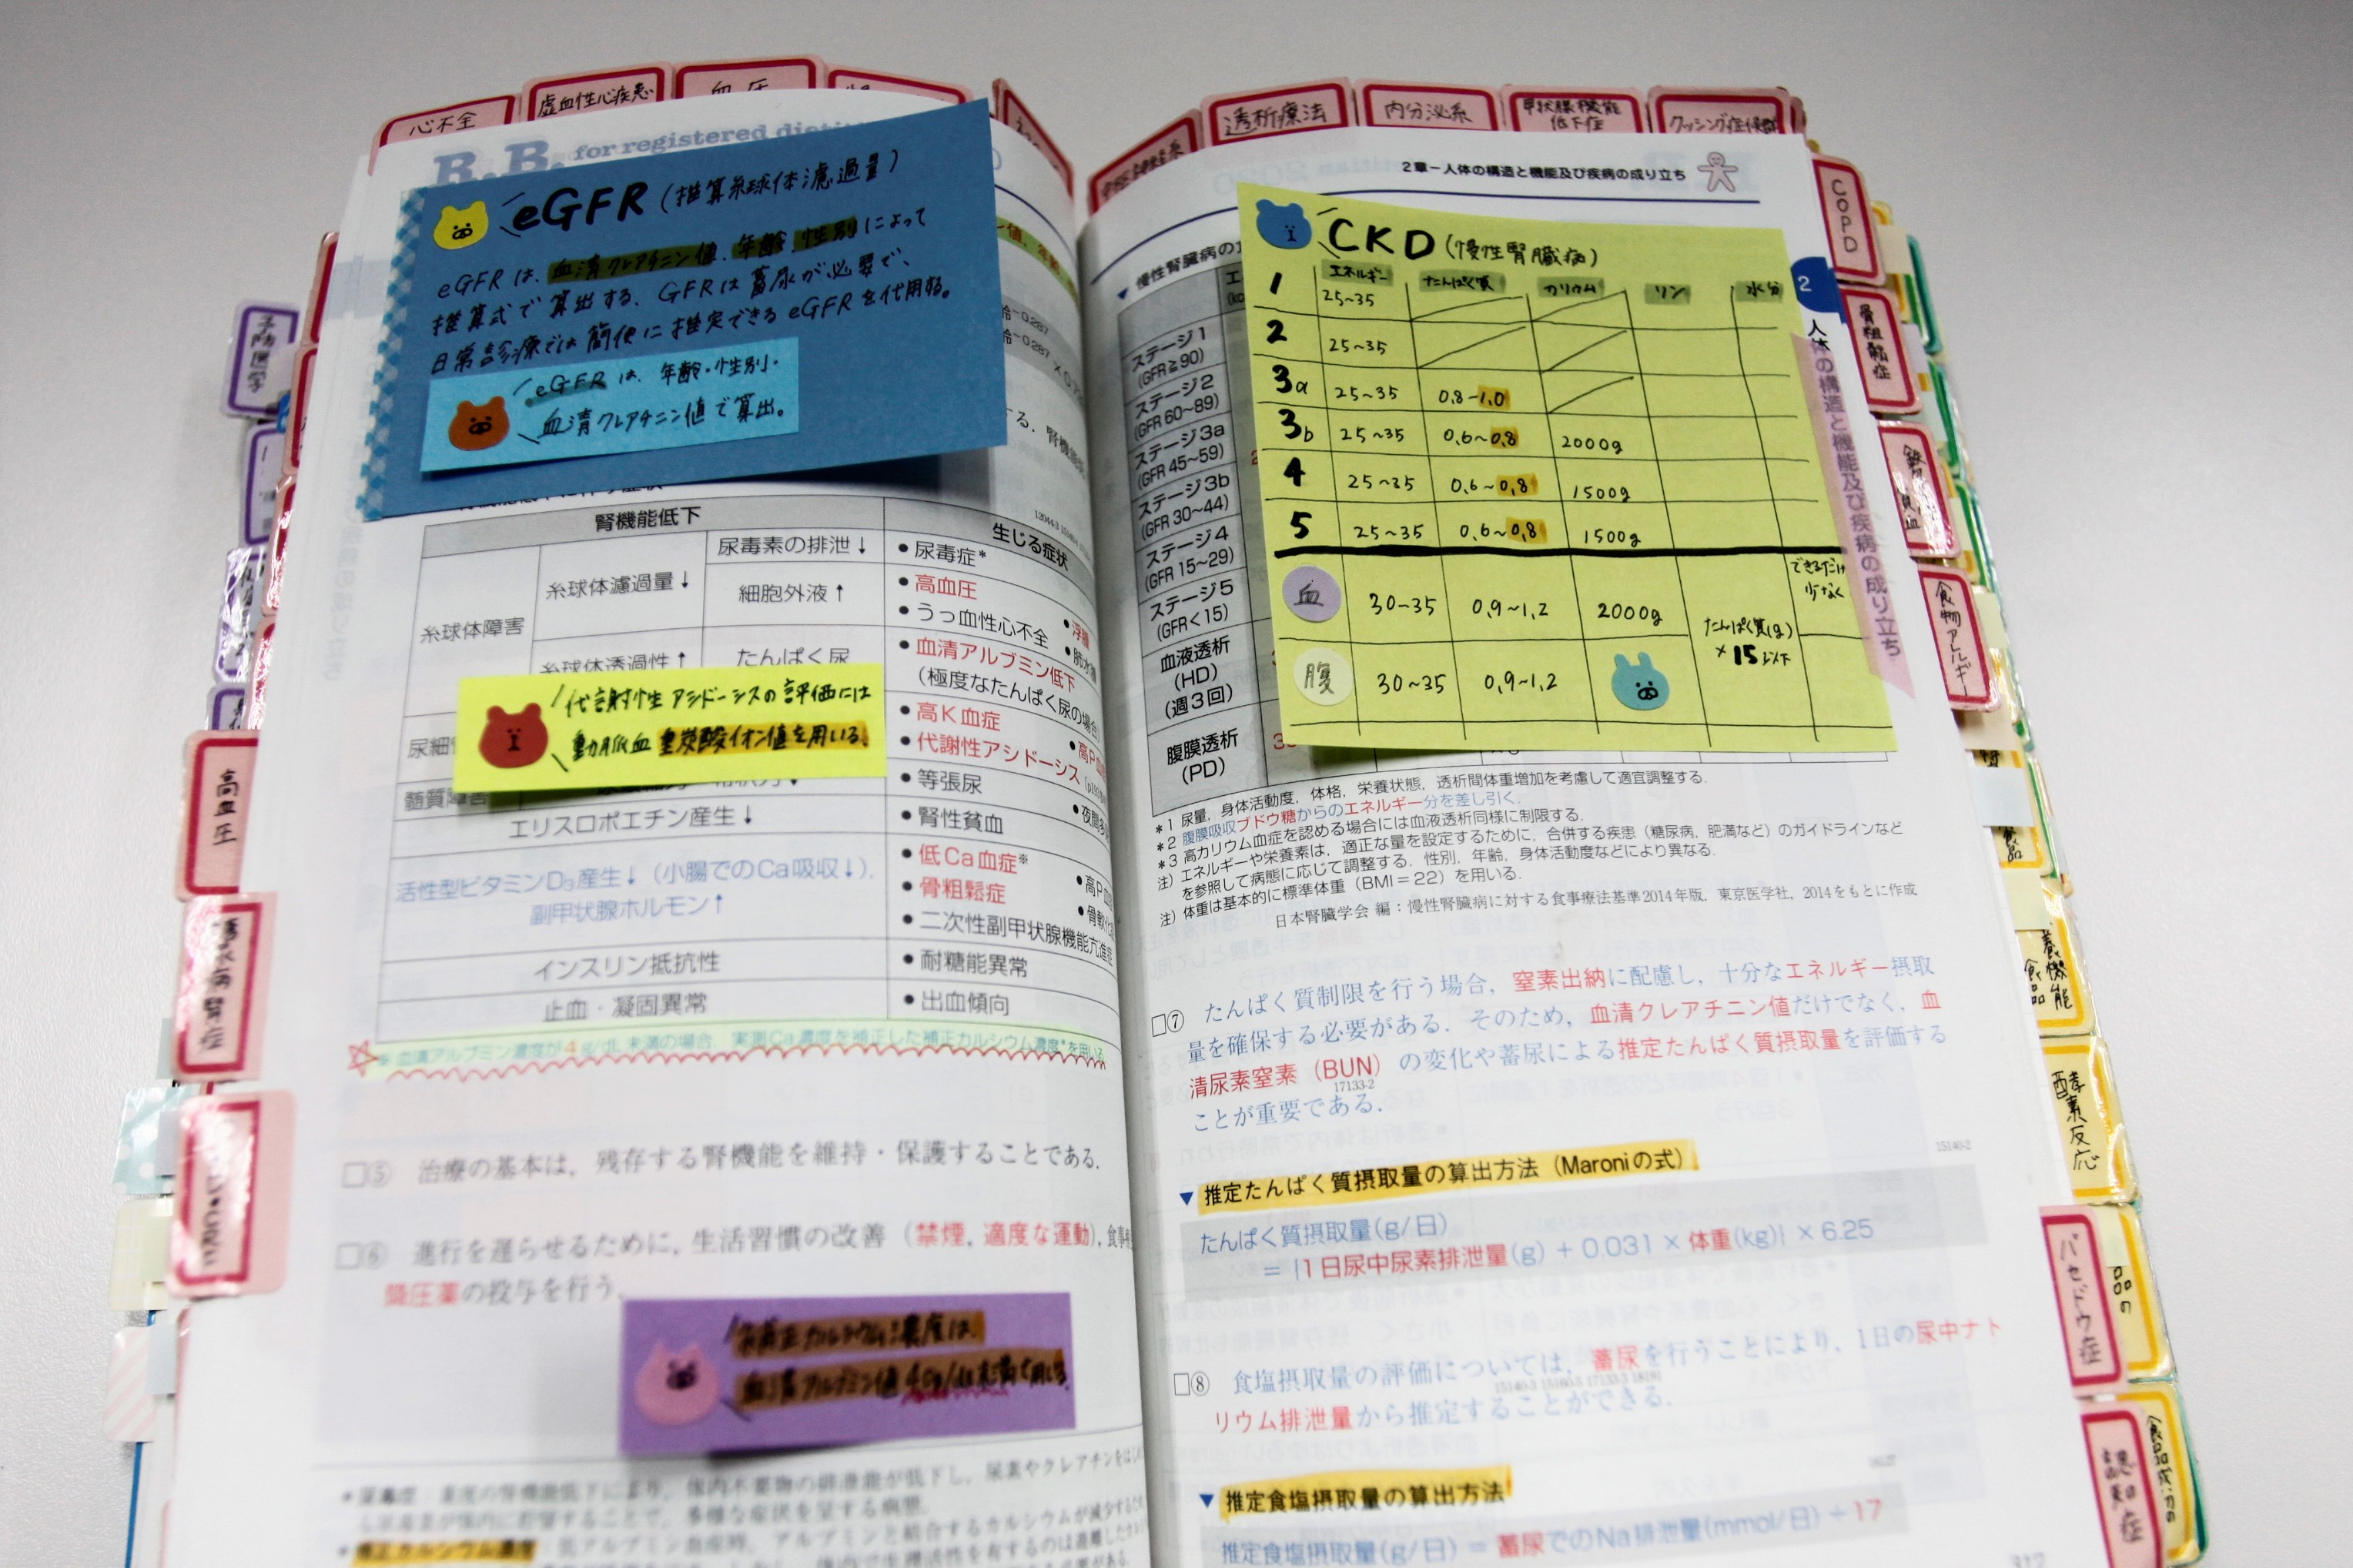 心不全
虚血性心疾患
血圧
透析療法
内分泌系
甲状腺機能
低下症
クッシング症候群
COPD
骨粗鬆症
食物アレルギー
バセドウ症
認知症
酵素反応
養機能
食品
食品成分の
予防医学
高血圧
R.B. for registered
eGFR (推算糸球体濾過量)
eGFRは、血清クレアチニン値、年齢、性別によって
推算式で算出する。GFRは蓄尿が必要で、
日常診療では簡便に推定できるeGFRを代用する。
eGFRは、年齢・性別・
血清クレアチニン値で算出。
腎機能低下
生じる症状
糸球体障害
糸球体濾過量↓
尿毒素の排泄↓
●尿毒症*
細胞外液↑
●高血圧
●うっ血性心不全
●浮腫
糸球体透過性↑
たんぱく尿
●血清アルブミン低下
(極度なたんぱく尿の場合)
代謝性アシドーシスの評価には
動脈血重炭酸イオン値を用いる。
●高K血症
●代謝性アシドーシス
髄質障害
●等張尿
エリスロポエチン産生↓
●腎性貧血
活性型ビタミンD₃産生↓(小腸でのCa吸収↓),
副甲状腺ホルモン↑
●低Ca血症※
●骨粗鬆症
●二次性副甲状腺機能亢進症
インスリン抵抗性
●耐糖能異常
止血・凝固異常
●出血傾向
※血清アルブミン濃度が4 g/dL未満の場合,実測Ca濃度を補正した補正カルシウム濃度*を用いる
□⑤ 治療の基本は,残存する腎機能を維持・保護することである.
□⑥ 進行を遅らせるために,生活習慣の改善(禁煙,適度な運動),食事
降圧薬の投与を行う.
補正カルシウム濃度は、
血清アルブミン値4.0g/dL未満で用いる。
補正カルシウム濃度
2章-人体の構造と機能及び疾病の成り立ち
2
人体の構造と機能及び疾病の成り立ち
CKD (慢性腎臓病)
エネルギー たんぱく質 カリウム リン 水分
1 25~35
2 25~35
3a 25~35 0.8~1.0
3b 25~35 0.6~0.8 2000g
4 25~35 0.6~0.8 1500g
5 25~35 0.6~0.8 1500g
血 30~35 0.9~1.2 2000g たんぱく質(g)×15以下 できるだけ少なく
腹 30~35 0.9~1.2
▼慢性腎臓病の
ステージ1
(GFR≧90)
ステージ2
(GFR 60~89)
ステージ3a
(GFR 45~59)
ステージ3b
(GFR 30~44)
ステージ4
(GFR 15~29)
ステージ5
(GFR<15)
血液透析
(HD)
(週3回)
腹膜透析
(PD)
*1 尿量,身体活動度,体格,栄養状態,透析間体重増加を考慮して適宜調整する.
*2 腹膜吸収ブドウ糖からのエネルギー分を差し引く.
*3 高カリウム血症を認める場合には血液透析同様に制限する.
注)エネルギーや栄養素は,適正な量を設定するために,合併する疾患(糖尿病,肥満など)のガイドラインなど
を参照して病態に応じて調整する.性別,年齢,身体活動度などにより異なる.
注)体重は基本的に標準体重(BMI=22)を用いる.
日本腎臓学会 編:慢性腎臓病に対する食事療法基準2014年版,東京医学社,2014をもとに作成
□⑦ たんぱく質制限を行う場合,窒素出納に配慮し,十分なエネルギー摂取
量を確保する必要がある.そのため,血清クレアチニン値だけでなく,血
清尿素窒素(BUN)の変化や蓄尿による推定たんぱく質摂取量を評価する
17133-2
ことが重要である.
15140-2
▼推定たんぱく質摂取量の算出方法(Maroniの式)
たんぱく質摂取量(g/日)
={1日尿中尿素排泄量(g)+0.031×体重(kg)}×6.25
□⑧ 食塩摂取量の評価については,蓄尿を行うことにより,1日の尿中ナト
リウム排泄量から推定することができる.
▼推定食塩摂取量の算出方法
推定食塩摂取量(g/日)=蓄尿でのNa排泄量(mmol/日)÷17